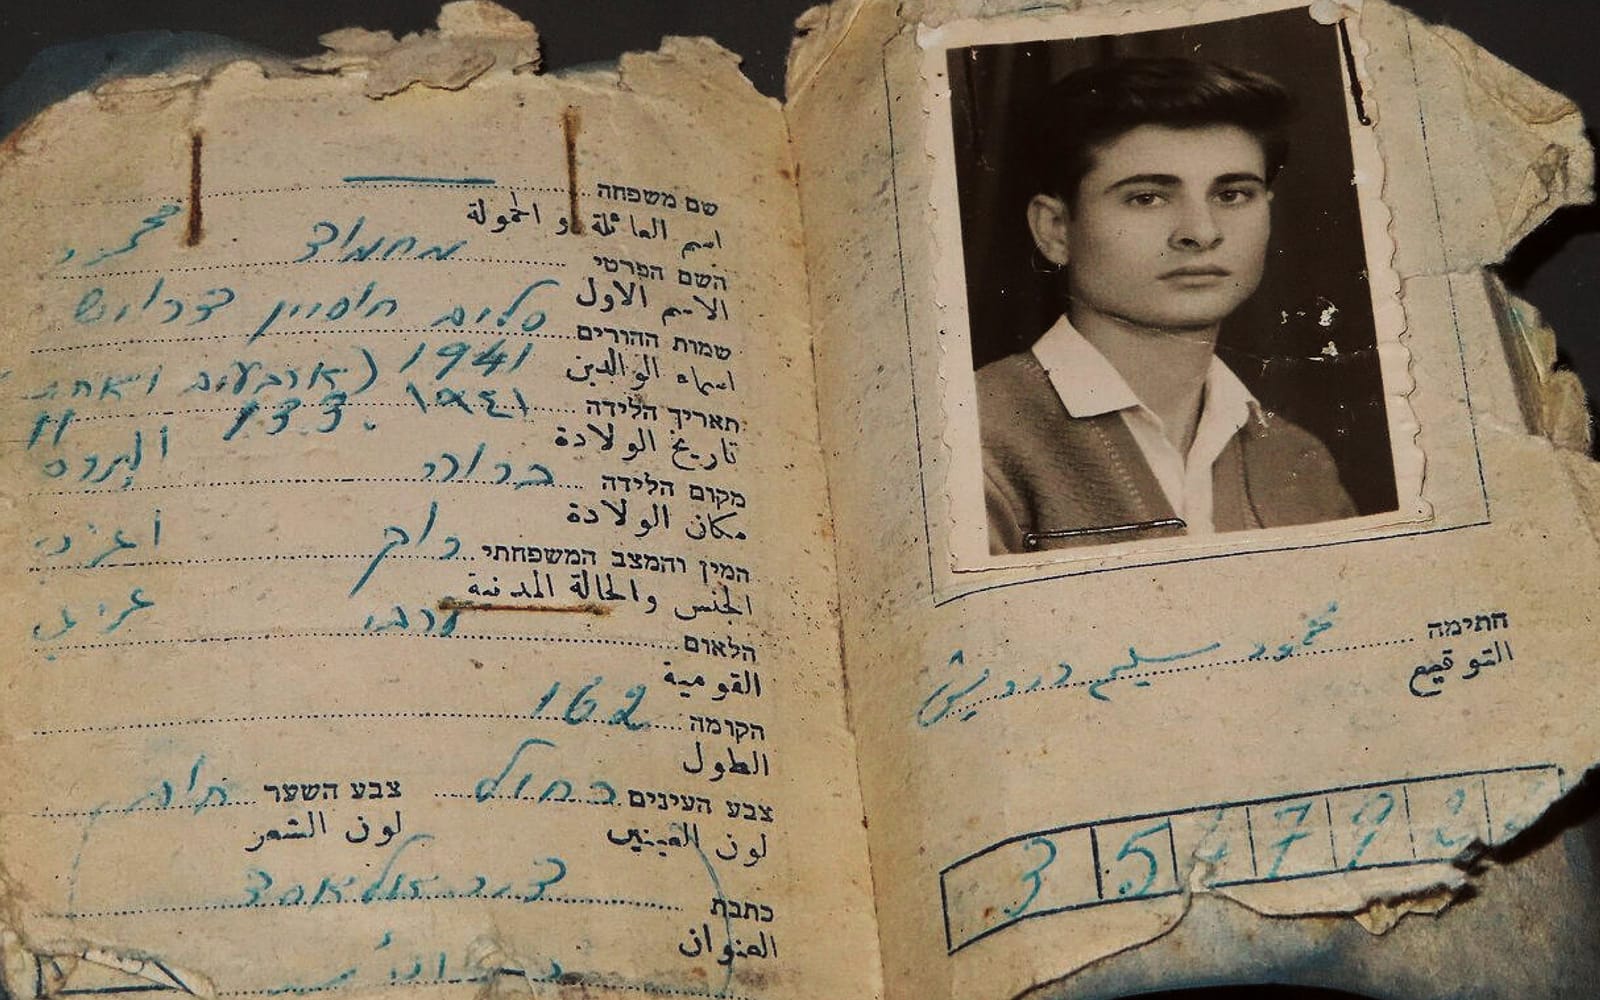 שם משפחה
اسم العائلة و الحمولة
השם הפרטי מחמוד محمود
الاسم الاول
שמות ההורים סלים חוסיין דרויש
اسماء الوالدين
תאריך הלידה 1941 (ארבעים ואחת
تاريخ الولادة ١٩٤١
מקום הלידה ברווה
مكان الولادة
המין והמצב המשפחתי רוק اعزب
الجنس والحالة المدنية
הלאום ערבי عربي
القومية
הקומה 162
الطول
צבע העינים כחול צבע השער חום
لون العينين لون الشعر
כתבת דיר אלאסד
العنوان
חתימה محمود سليم درويش
التوقيع
3 5 7 9 2